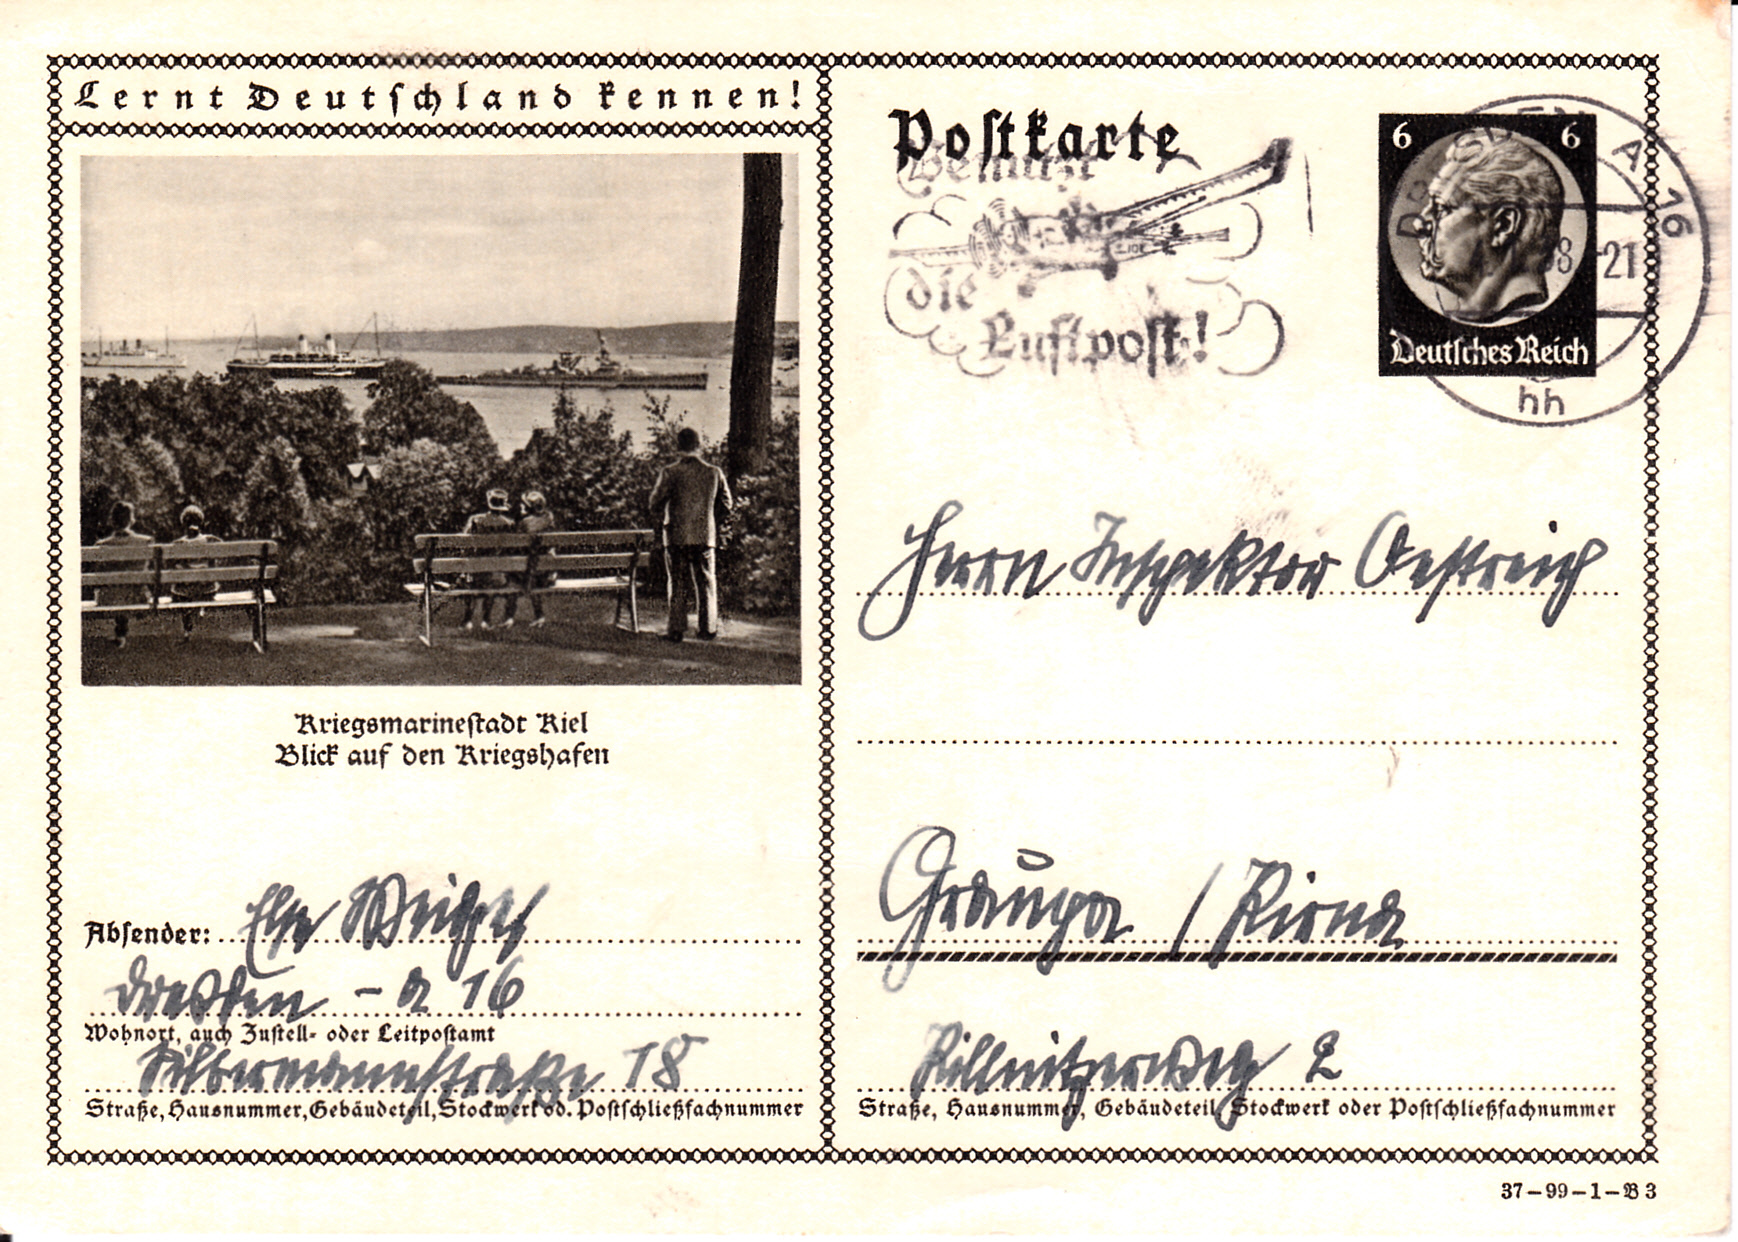 Lernt Deutschland kennen!
Kriegsmarinestadt Kiel
Blick auf den Kriegshafen
Absender: Else
Dresden - A 16
Wohnort, auch Zustell- oder Leitpostamt
Silbermannstraße 18
Straße, Hausnummer, Gebäudeteil, Stockwerk od. Postschließfachnummer
Postkarte
Benutzt
die
Luftpost!
6 6
Deutsches Reich
DRESDEN A 16
38 -21
hh
Herrn Inspektor Oestreich
Graupa / Pirna
Pillnitzerweg 2
Straße, Hausnummer, Gebäudeteil, Stockwerk oder Postschließfachnummer
37-99-1-B3